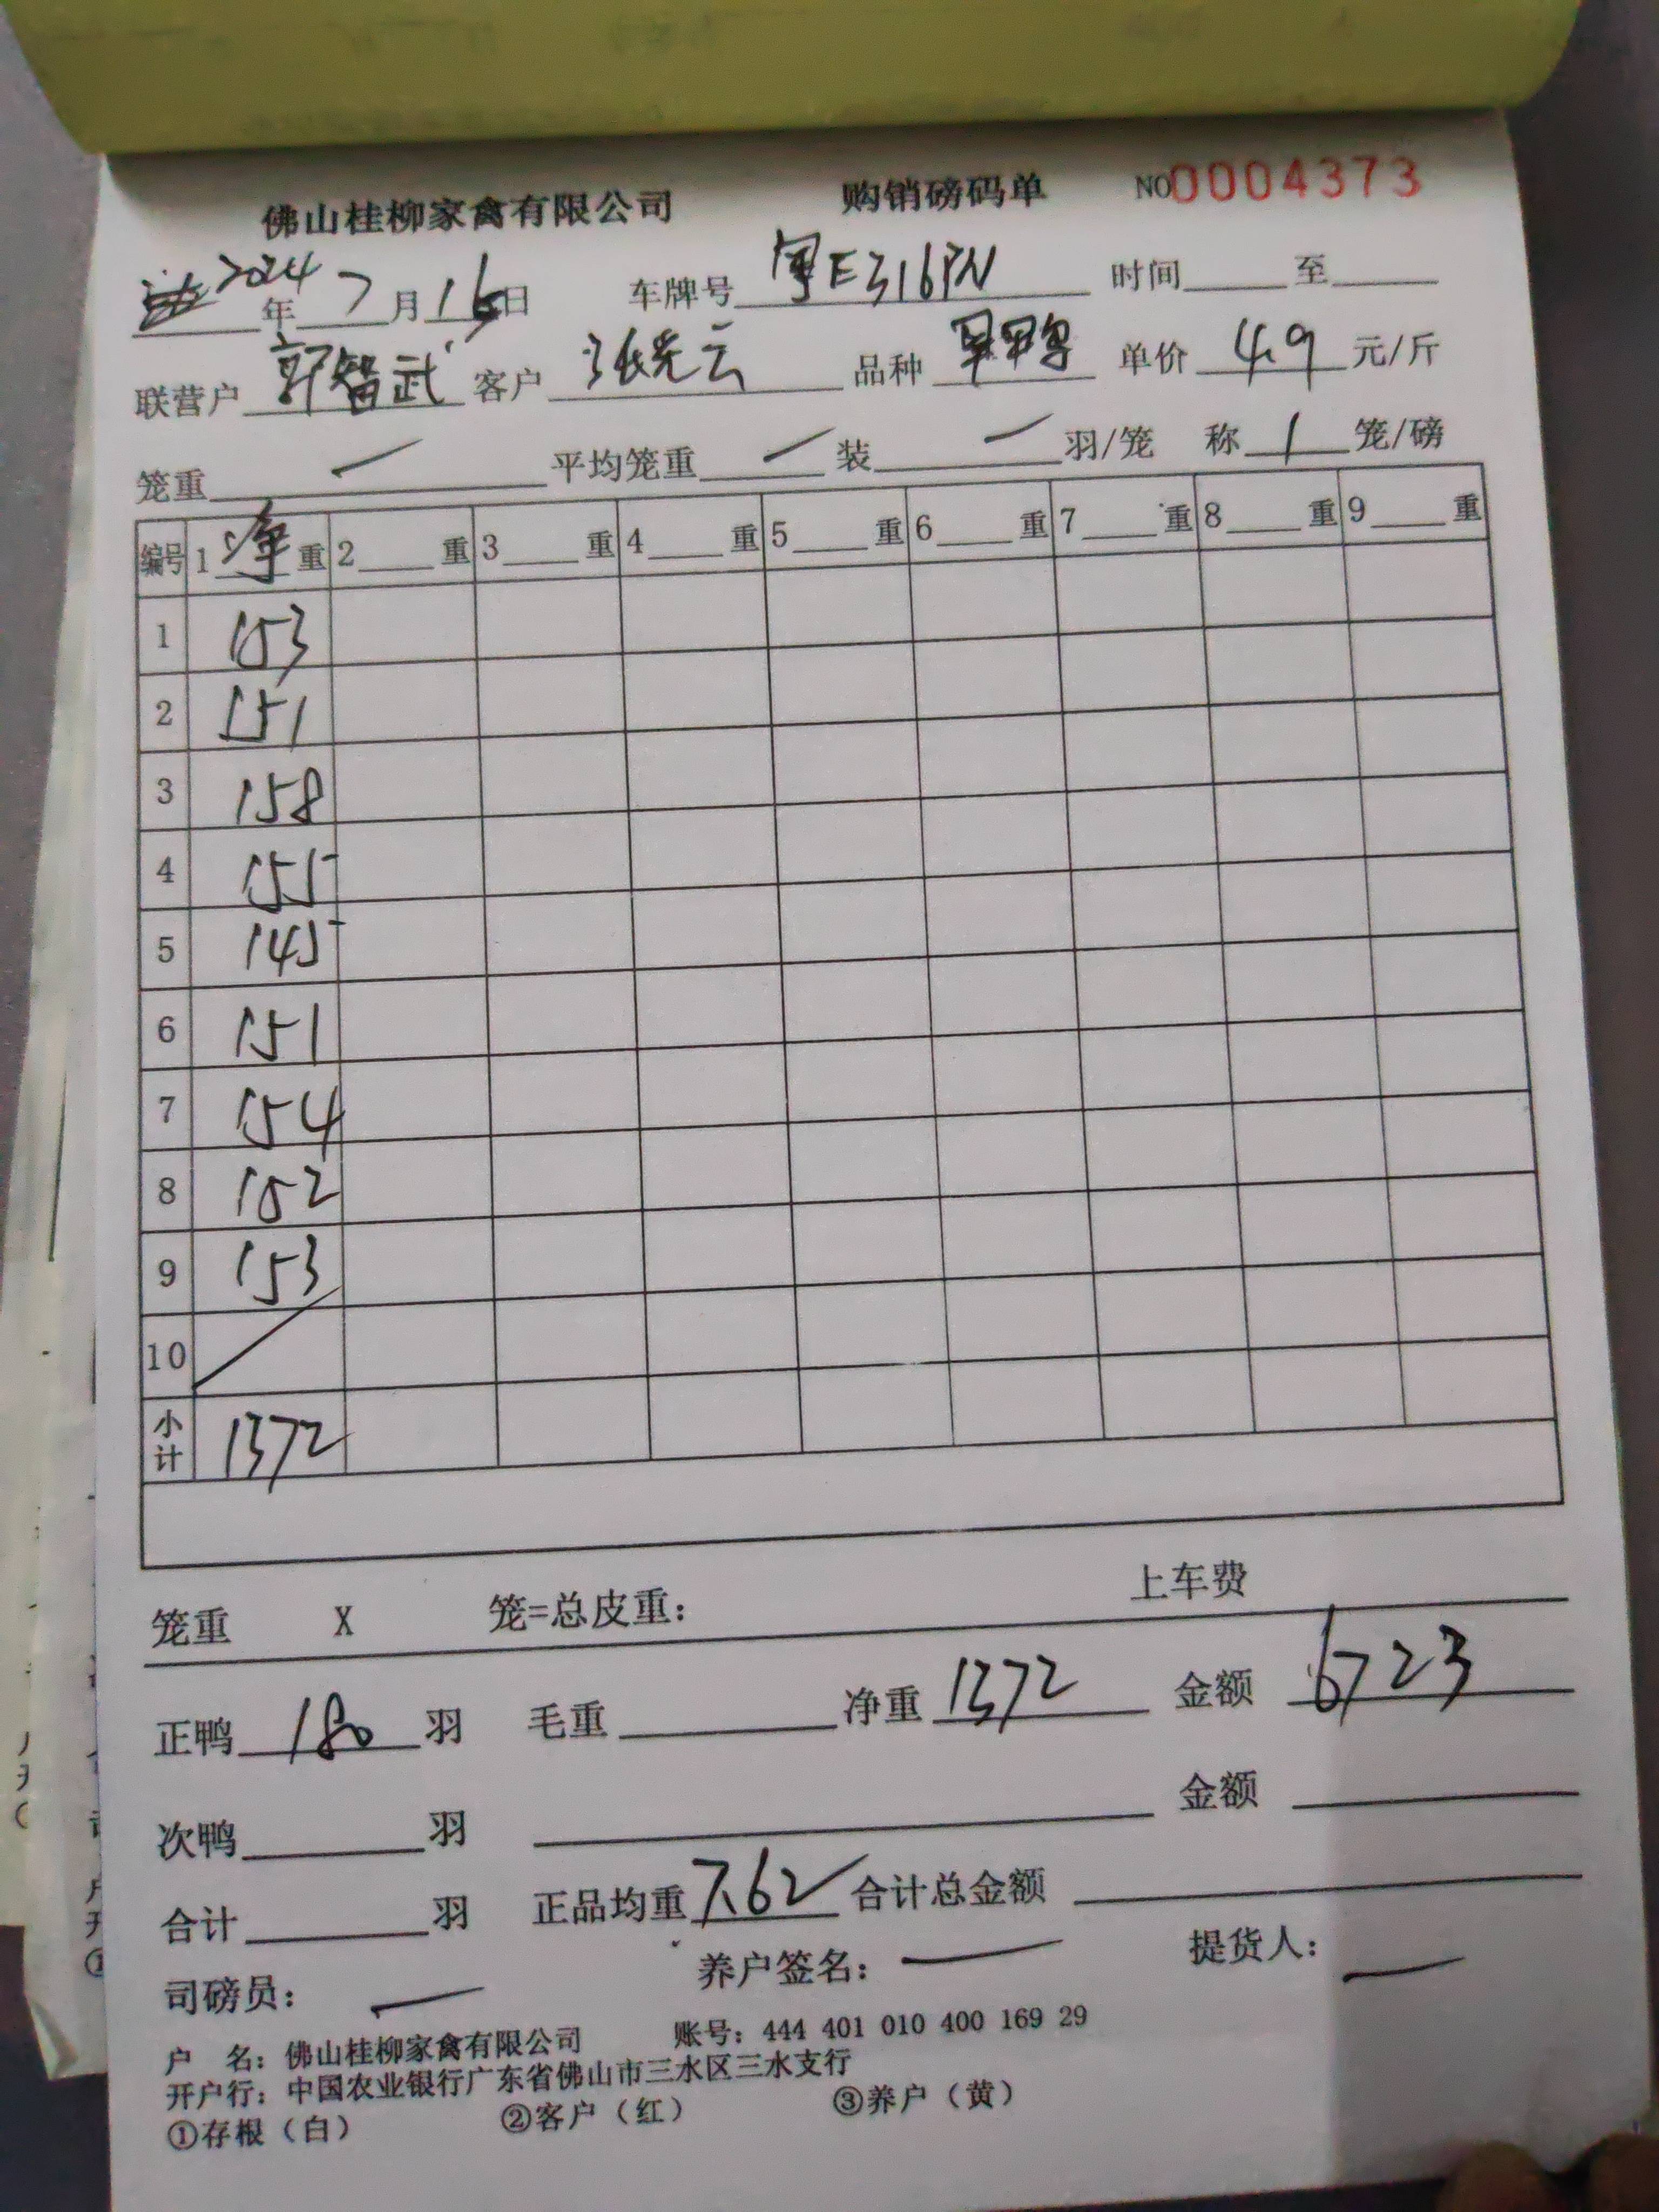 佛山桂柳家禽有限公司 购销磅码单 NO0004373
2024年7月16日 车牌号 粤E316PN 时间 至
联营户 郭智武 客户 张先云 品种 单价 4.9 元/斤
笼重 一 平均笼重 一 装 一 羽/笼 称 1 笼/磅
编号 1 净 重 2 重 3 重 4 重 5 重 6 重 7 重 8 重 9 重
1 153
2 151
3 158
4 155
5 145
6 151
7 154
8 152
9 153
10
小计 1372
笼重 X 笼=总皮重: 上车费
正鸭 180 羽 毛重 净重 1372 金额 6723
次鸭 羽 金额
合计 羽 正品均重 7.62 合计总金额
司磅员: 一 养户签名: 一 提货人: 一
户 名: 佛山桂柳家禽有限公司 账号: 444 401 010 400 169 29
开户行: 中国农业银行广东省佛山市三水区三水支行
①存根(白) ②客户(红) ③养户(黄)